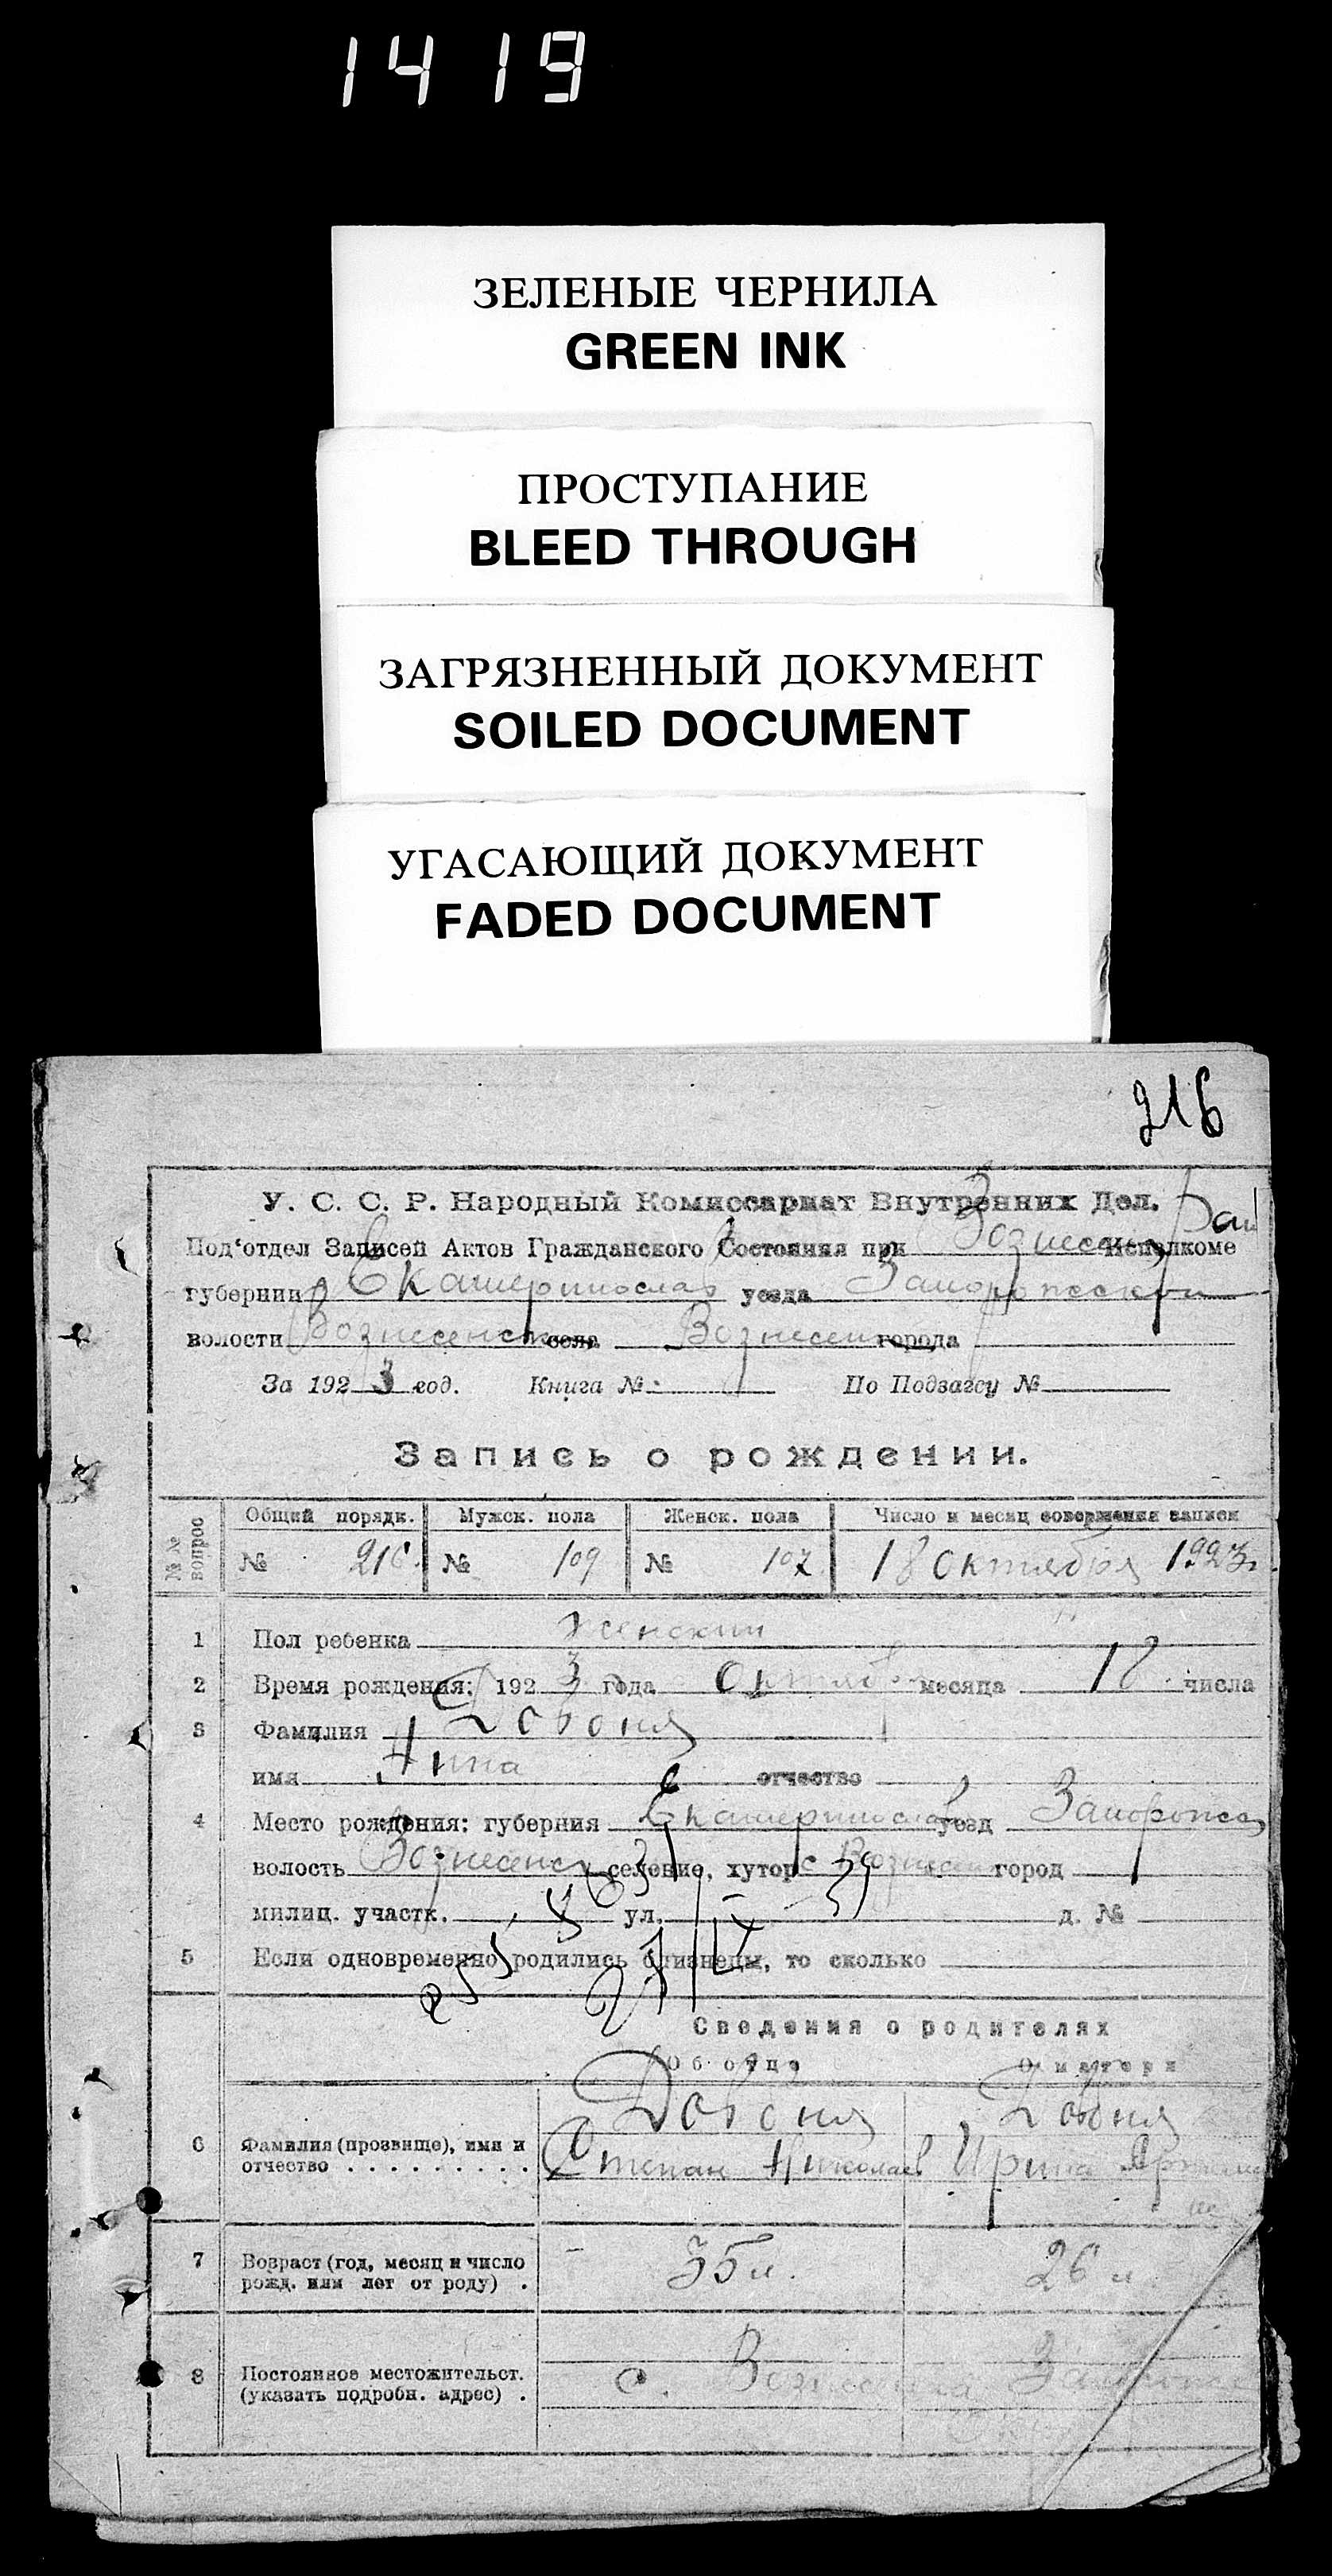 1419
ЗЕЛЕНЫЕ ЧЕРНИЛА
GREEN INK
ПРОСТУПАНИЕ
BLEED THROUGH
ЗАГРЯЗНЕННЫЙ ДОКУМЕНТ
SOILED DOCUMENT
УГАСАЮЩИЙ ДОКУМЕНТ
FADED DOCUMENT
216
У. С. С. Р. Народный Комиссариат Внутренних Дел.
Под'отдел Записей Актов Гражданского Состояния при Вознесенск Рай Исполкоме
губернии Екатеринослав уезда Запорожской
волости Вознесенск села Вознесен города
За 1923 год. Книга № По Подзагсу №
Запись о рождении.
№№ вопрос
Общий порядк. Мужск. пола Женск. пола Число и месяц совершения записи
№ 216. № 109 № 107 18 Октября 1923 г.
1 Пол ребенка женский
2 Время рождения: 1923 года Октября месяца 18 числа
3 Фамилия Довбня
имя Анна отчество
4 Место рождения: губерния Екатеринослав уезд Запорожск
волость Вознесенск селение, хутор с Вознесен город
милиц. участк. ул. д. №
5 Если одновременно родились близнецы, то сколько
Сведения о родителях
Об отце О матери
Довбня Довбня
6 Фамилия (прозвище), имя и отчество Степан Николаев Ирина
7 Возраст (год, месяц и число рожд. или лет от роду) 35 л. 26 л.
8 Постоянное местожительст. (указать подробн. адрес) с. Вознесенка